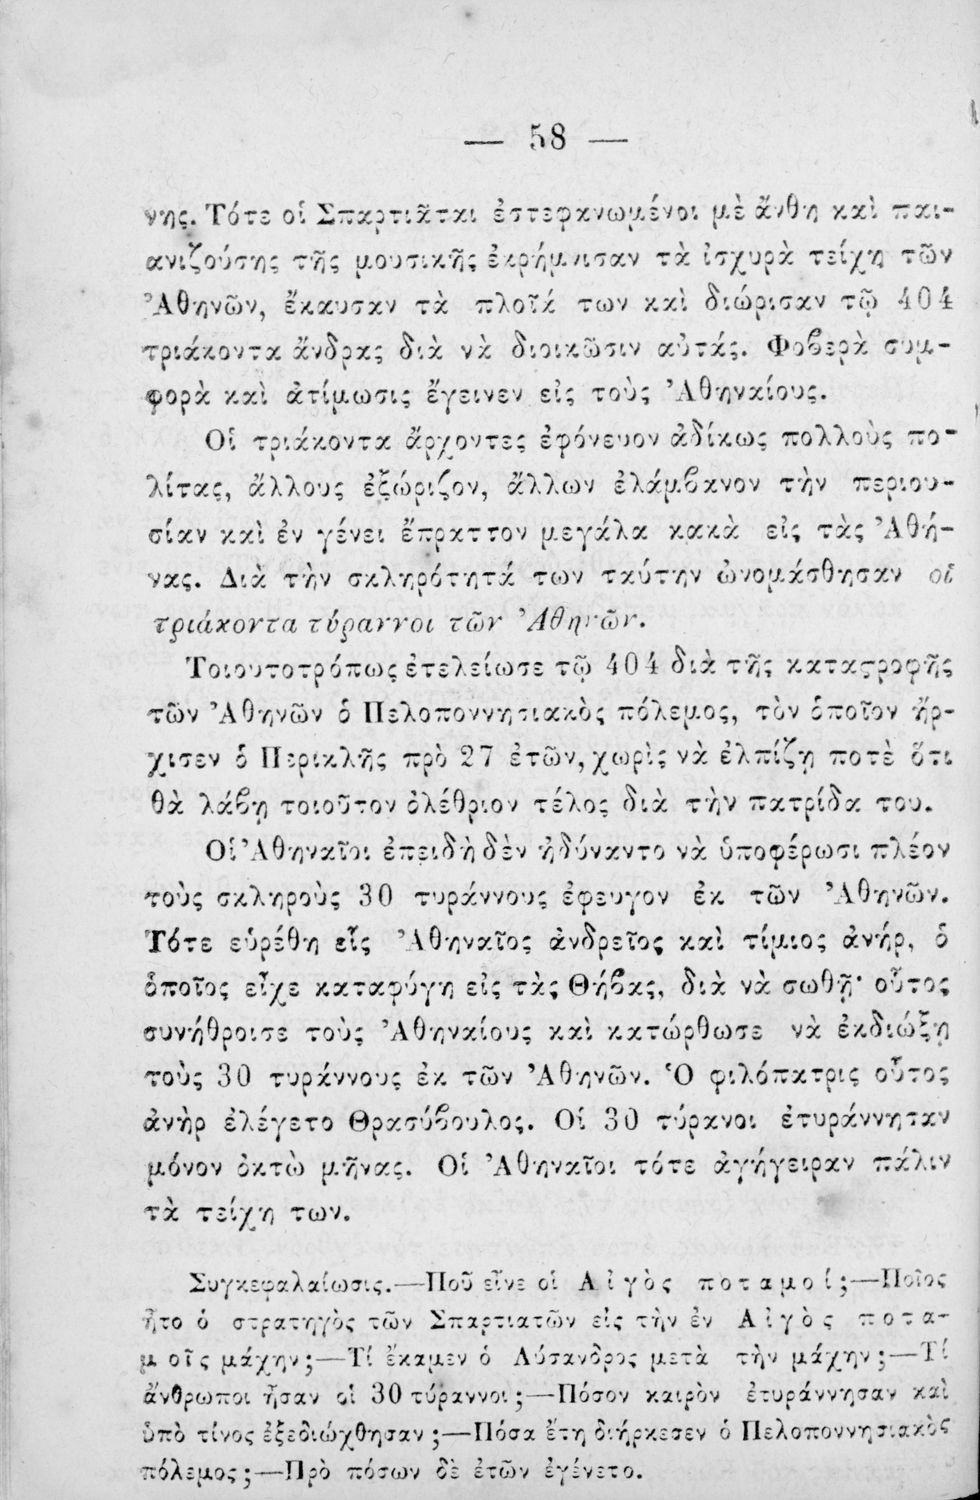 — 58 —
νης. Τότε οἱ Σπαρτιᾶται ἐστεφανωμένοι μὲ ἄνθη καὶ παι-
ανιζούσης τῆς μουσικῆς ἐκρήμνισαν τὰ ἰσχυρὰ τείχη τῶν
Ἀθηνῶν, ἔκαυσαν τὰ πλοῖά των καὶ διώρισαν τῷ 404
τριάκοντα ἄνδρας διὰ νὰ διοικῶσιν αὐτάς. Φοβερὰ συμ-
φορὰ καὶ ἀτίμωσις ἔγεινεν εἰς τοὺς Ἀθηναίους.
Οἱ τριάκοντα ἄρχοντες ἐφόνευον ἀδίκως πολλοὺς πο-
λίτας, ἄλλους ἐξώριζον, ἄλλων ἐλάμβανον τὴν περιου-
σίαν καὶ ἐν γένει ἔπραττον μεγάλα κακὰ εἰς τὰς Ἀθή-
νας. Διὰ τὴν σκληρότητά των ταύτην ὠνομάσθησαν οἱ
τριάκοντα τύραννοι τῶν Ἀθηνῶν.
Τοιουτοτρόπως ἐτελείωσε τῷ 404 διὰ τῆς καταστροφῆς
τῶν Ἀθηνῶν ὁ Πελοποννησιακὸς πόλεμος, τὸν ὁποῖον ἤρ-
χισεν ὁ Περικλῆς πρὸ 27 ἐτῶν, χωρὶς νὰ ἐλπίζῃ ποτὲ ὅτι
θὰ λάβῃ τοιοῦτον ὀλέθριον τέλος διὰ τὴν πατρίδα του.
Οἱ Ἀθηναῖοι ἐπειδὴ δὲν ἠδύναντο νὰ ὑποφέρωσι πλέον
τοὺς σκληροὺς 30 τυράννους ἐφευγον ἐκ τῶν Ἀθηνῶν.
Τότε εὑρέθη εἷς Ἀθηναῖος ἀνδρεῖος καὶ τίμιος ἀνήρ, ὁ
ὁποῖος εἶχε καταφύγῃ εἰς τὰς Θήβας, διὰ νὰ σωθῇ· οὗτος
συνήθροισε τοὺς Ἀθηναίους καὶ κατώρθωσε νὰ ἐκδιώξῃ
τοὺς 30 τυράννους ἐκ τῶν Ἀθηνῶν. Ὁ φιλόπατρις οὗτος
ἀνὴρ ἐλέγετο Θρασύβουλος. Οἱ 30 τύρανοι ἐτυράννησαν
μόνον ὀκτὼ μῆνας. Οἱ Ἀθηναῖοι τότε ἀγήγειραν πάλιν
τὰ τείχη των.
Συγκεφαλαίωσις.—Ποῦ εἶνε οἱ Αἰγὸς ποταμοί;—Ποῖος
ἦτο ὁ στρατηγὸς τῶν Σπαρτιατῶν εἰς τὴν ἐν Αἰγὸς ποτα-
μοῖς μάχην;—Τί ἔκαμεν ὁ Λύσανδρος μετὰ τὴν μάχην;—Τί
ἄνθρωποι ἦσαν οἱ 30 τύραννοι;—Πόσον καιρὸν ἐτυράννησαν καὶ
ὑπὸ τίνος ἐξεδιώχθησαν;—Πόσα ἔτη διήρκεσεν ὁ Πελοποννησιακὸς
πόλεμος;—Πρὸ πόσων δὲ ἐτῶν ἐγένετο.